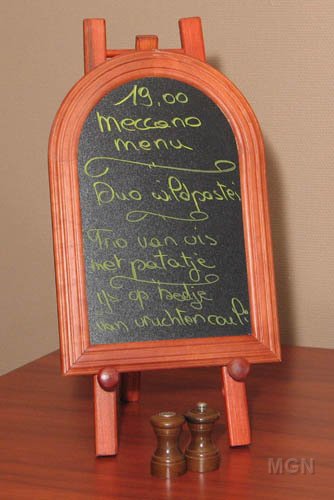 19.00
Meccano
menu
Duo wildpastei
Trio van vis
met patatje
ijs op bedje
van vruchtencouli
MGN